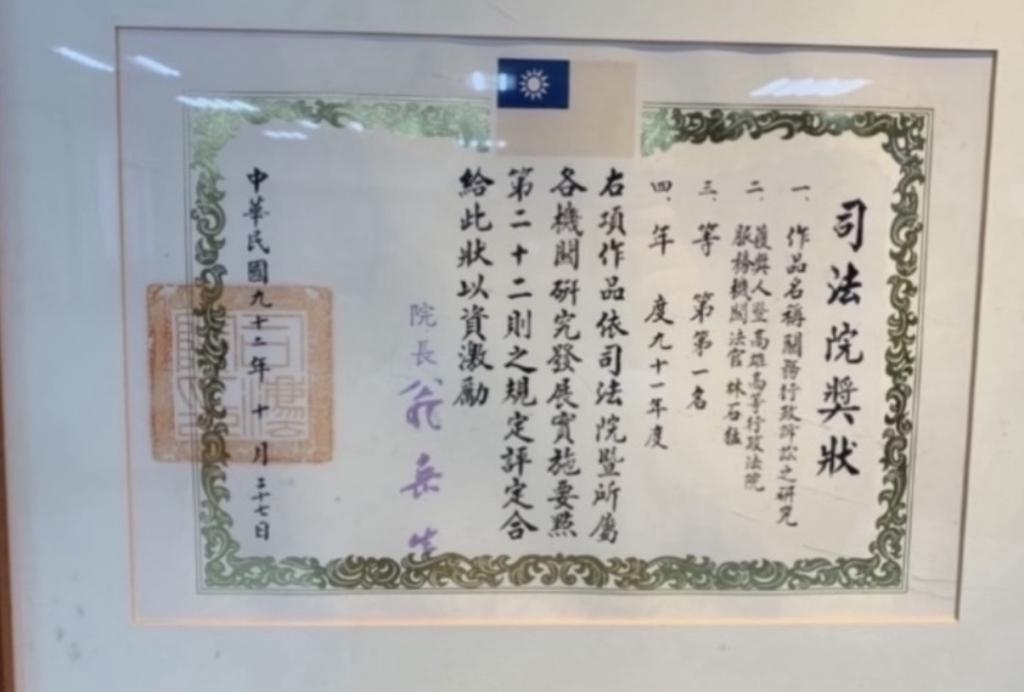 司法院獎狀
一、作品名稱關務行政訴訟之研究
二、獲獎人暨高雄高等行政法院
服務機關法官林石猛
三、等第第一名
四、年度九十一年度
右項作品依司法院暨所屬
各機關研究發展實施要點
第二十二則之規定評定合
給此狀以資激勵
院長翁岳生
中華民國九十二年十月二十七日